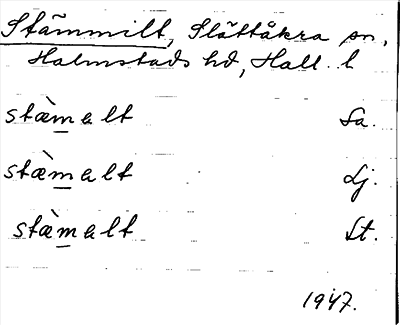 Stämmilt, Slättåkra sn,
Halmstads hd, Hall. l
stæ̀malt Sa.
stæ̀malt Lj.
stæ̀malt Lt.
1947.